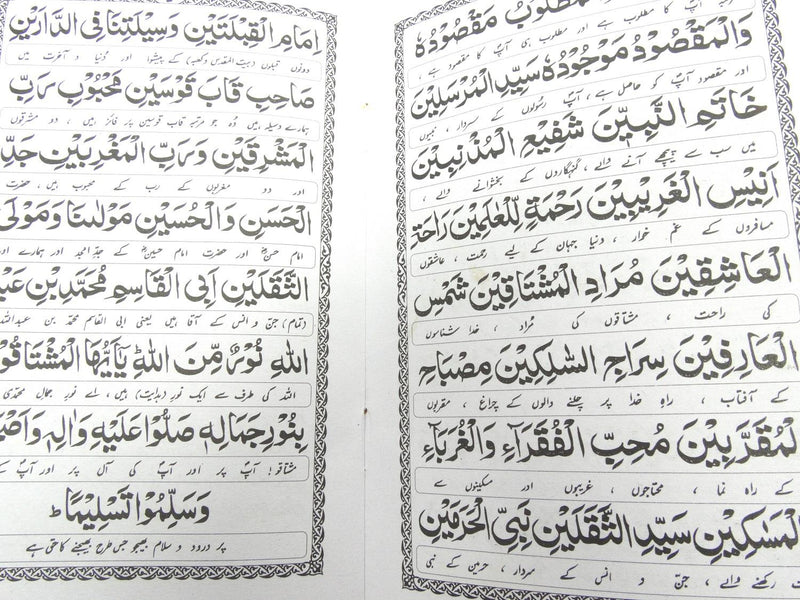 مَطْلُوْبُ مَقْصُوْدُهٗ
آپؐ کا مطلوب ہے اور مطلوب ہی آپؐ کا مقصود ہے ،
وَالْمَقْصُوْدُ مَوْجُوْدُهٗ سَيِّدِ الْمُرْسَلِيْنَ
اور مقصود آپؐ کو حاصل ہے، آپؐ رسولوں کے سردار ، نبیوں
خَاتَمِ النَّبِيّٖنَ شَفِيْعِ الْمُذْنِبِيْنَ
میں سب سے پیچھے آنے والے ، گنہگاروں کے بخشوانے والے ،
اَنِيْسِ الْغَرِيْبِيْنَ رَحْمَةٍ لِّلْعٰلَمِيْنَ رَاحَةِ
مسافروں کے غم خوار ، دنیا جہان کے لیے رحمت ، عاشقوں
الْعَاشِقِيْنَ مُرَادِ الْمُشْتَاقِيْنَ شَمْسِ
کی راحت ، مشتاقوں کی مُراد ، خدا شناسوں
الْعَارِفِيْنَ سِرَاجِ السّٰلِكِيْنَ مِصْبَاحِ
کے آفتاب ، راہِ خدا پر چلنے والوں کے چراغ ، مقربوں
الْمُقَرَّبِيْنَ مُحِبِّ الْفُقَرَآءِ وَالْغُرَبَآءِ
کے راہ نما ، محتاجوں ، غریبوں اور مسکینوں سے
الْمَسَاكِيْنِ سَيِّدِ الثَّقَلَيْنِ نَبِيِّ الْحَرَمَيْنِ
رکھنے والے ، جنّ و انس کے سردار ، حرمین کے نبی
اِمَامِ الْقِبْلَتَيْنِ وَسِيْلَتِنَا فِي الدَّارَيْنِ
دونوں قبلوں (بیت المقدس و کعبہ) کے پیشوا اور دُنیا و آخرت میں
صَاحِبِ قَابَ قَوْسَيْنِ مَحْبُوْبِ رَبِّ
ہمارے وسیلہ ہیں وُہ جو مرتبہ قاب قوسین پر فائز ہیں ، دو مشرقوں
الْمَشْرِقَيْنِ وَرَبِّ الْمَغْرِبَيْنِ جَدِّ
اور دو مغربوں کے رب کے محبوب ہیں ، حضرت
الْحَسَنِ وَالْحُسَيْنِ مَوْلٰىنَا وَمَوْلَى
امام حسنؓ اور حضرت امام حسینؓ کے جدِّ امجد اور ہمارے اور
الثَّقَلَيْنِ اَبِي الْقَاسِمِ مُحَمَّدِ بْنِ
(تمام) جنّ و انس کے آقا ہیں یعنی ابی القاسم محمّد بن عبداللہ
اللّٰهِ نُوْرٍ مِّنْ نُّوْرِ اللّٰهِ يٰٓاَيُّهَا الْمُشْتَاقُوْنَ
اللہ کی طرف سے ایک نور (ہدایت) ہیں ، اے نورِ جمال محمّدی
بِنُوْرِ جَمَالِهٖ صَلُّوْا عَلَيْهِ وَاٰلِهٖ
مشتاقو! آپؐ پر اور آپؐ کی آل پر اور آپؐ کے
وَسَلِّمُوْا تَسْلِيْمًا ؕ
پر درود و سلام بھیجو جس طرح بھیجنے کا حق ہے